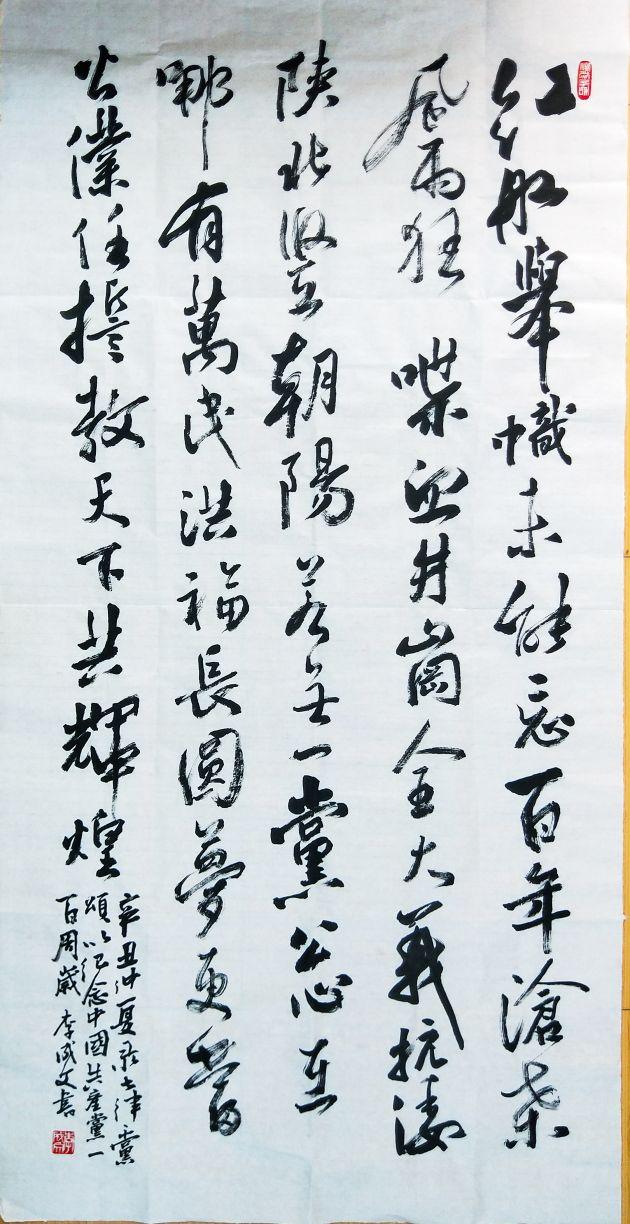 紅船舉幟未能忘百年滄桑
風雨狂喋血井崗全大義抗倭
陝北竪朝陽若無一黨公心在
哪有萬民洪福長圓夢更當
公僕任誓教天下共輝煌
辛丑仲夏录七律黨
頌以紀念中國共產黨一
百周歲 李成文書